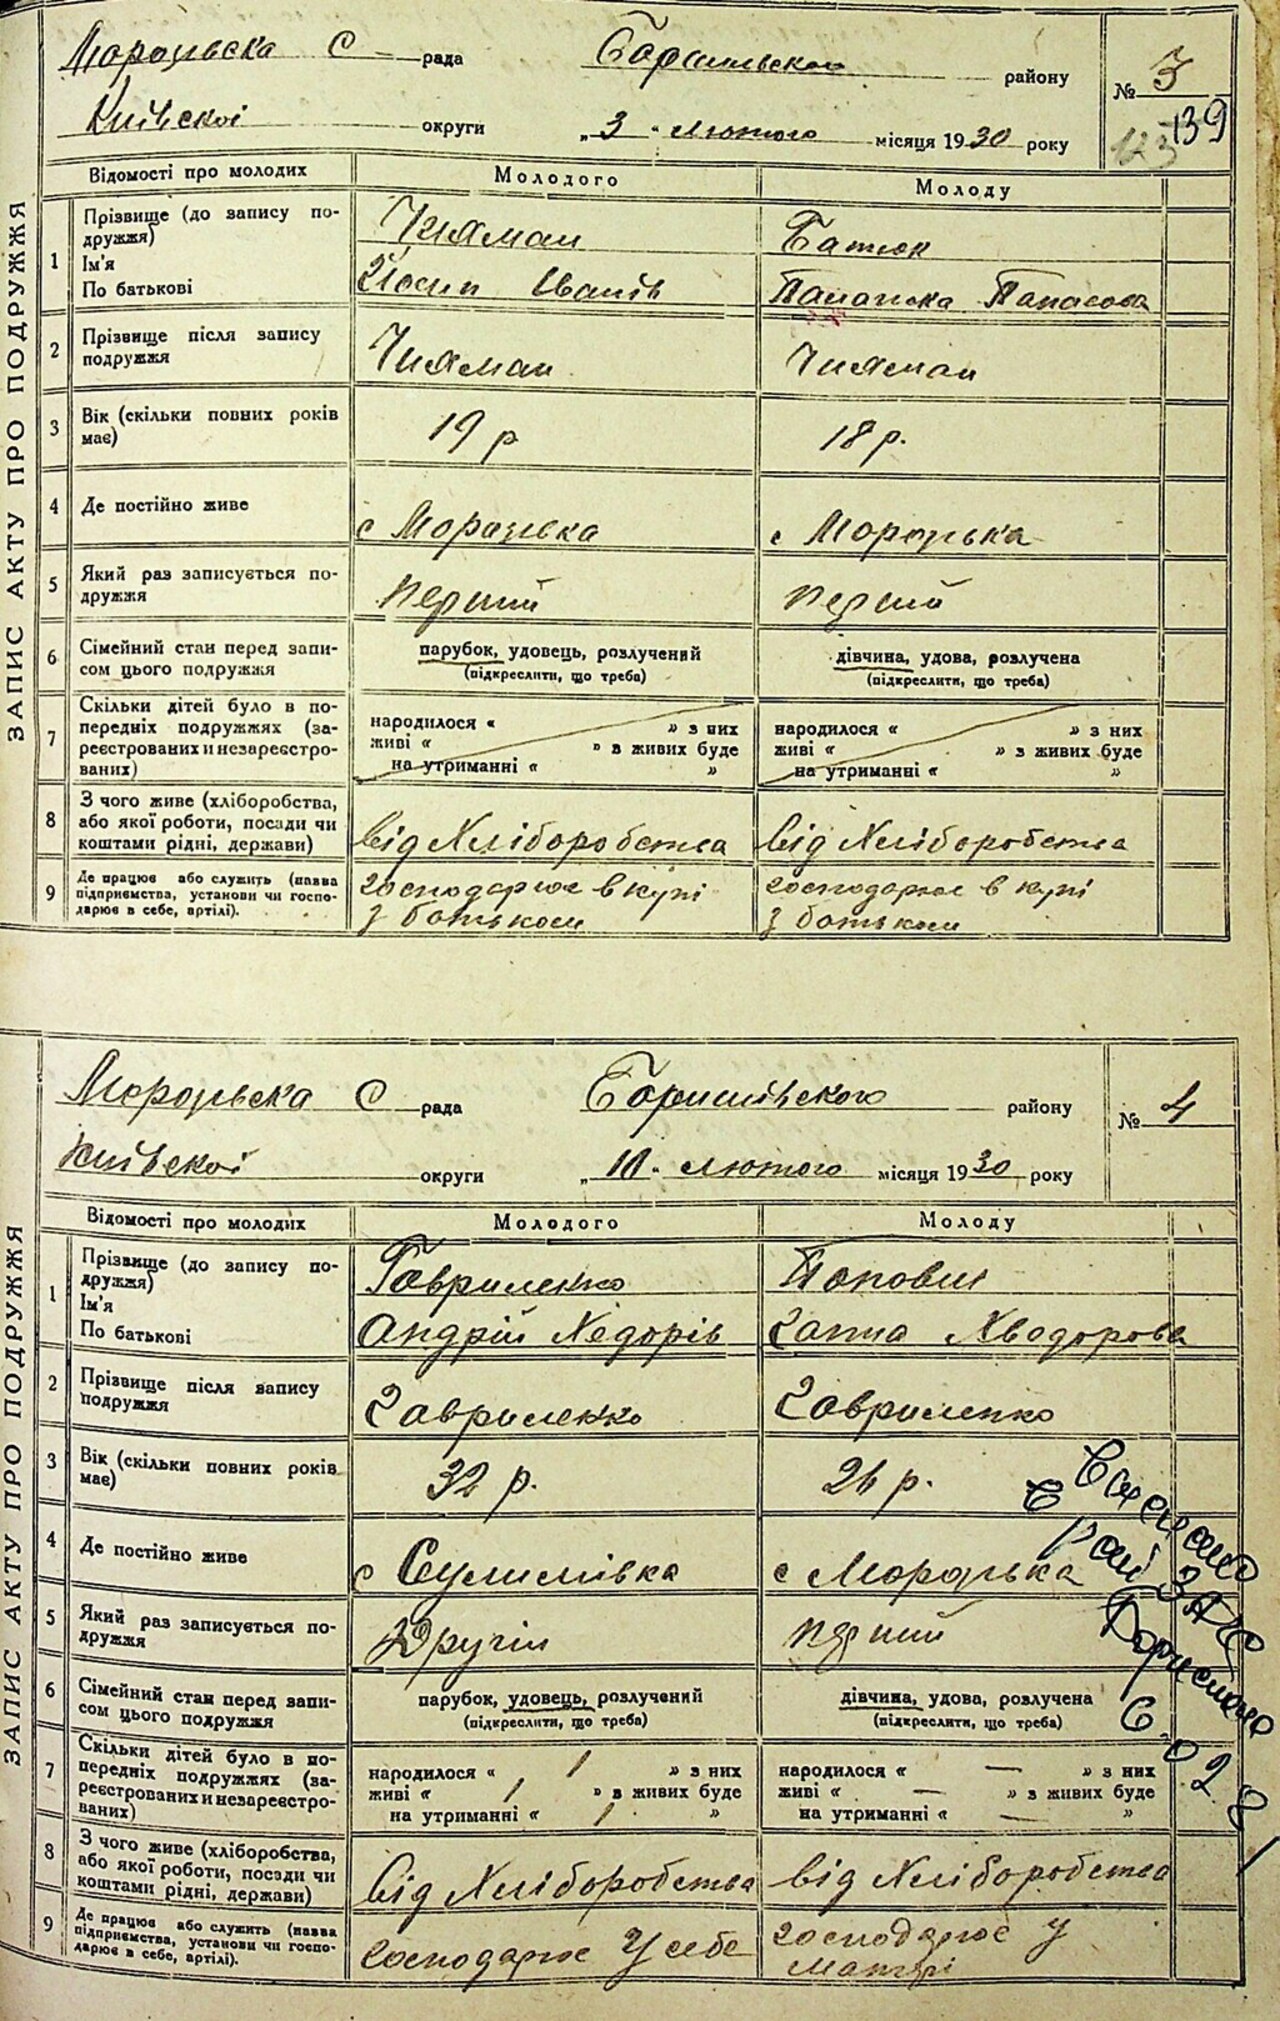 Морозівська С рада Баришівського району № 3
139
123
Київської округи „3" лютого місяця 1930 року
ЗАПИС АКТУ ПРО ПОДРУЖЖЯ
Відомості про молодих Молодого Молоду
1 Прізвище (до запису подружжя) Чихман Батюк
Ім'я
По батькові Йосип Іванів Палажка Панасова
2 Прізвище після запису подружжя Чихман Чихман
3 Вік (скільки повних років має) 19 р 18 р.
4 Де постійно живе с Морозівка с Морозівка
5 Який раз записується подружжя перший перший
6 Сімейний стан перед записом цього подружжя парубок, удовець, розлучений дівчина, удова, розлучена
(підкреслити, що треба) (підкреслити, що треба)
7 Скільки дітей було в попередніх подружжях (зареєстрованих и незареєстрованих) народилося « » з них народилося « » з них
живі « » з живих буде живі « » з живих буде
на утриманні « » на утриманні « »
8 З чого живе (хліборобства, або якої роботи, посади чи коштами рідні, держави) від Хліборобства від Хліборобства
9 Де працює або служить (назва підприємства, установи чи господарює в себе, артілі). господарює в купі господарює в купі
з батьком з батьком
Морозівська С рада Баришівського району № 4
Київської округи „10" лютого місяця 1930 року
ЗАПИС АКТУ ПРО ПОДРУЖЖЯ
Відомості про молодих Молодого Молоду
1 Прізвище (до запису подружжя) Гавриленко Попович
Ім'я
По батькові Андрій Хедорів Ганна Хводорова
2 Прізвище після запису подружжя Гавриленко Гавриленко
3 Вік (скільки повних років має) 32 р. 26 р.
4 Де постійно живе с Сулимівка с Морозівка
5 Який раз записується подружжя Другий перший
6 Сімейний стан перед записом цього подружжя парубок, удовець, розлучений дівчина, удова, розлучена
(підкреслити, що треба) (підкреслити, що треба)
7 Скільки дітей було в попередніх подружжях (зареєстрованих и незареєстрованих) народилося « 1 » з них народилося « — » з них
живі « 1 » з живих буде живі « — » з живих буде
на утриманні « 1 » на утриманні « — »
8 З чого живе (хліборобства, або якої роботи, посади чи коштами рідні, держави) Від Хліборобства від Хліборобства
9 Де працює або служить (назва підприємства, установи чи господарює в себе, артілі). господарює У себе господарює У
матері
рай ЗАГС